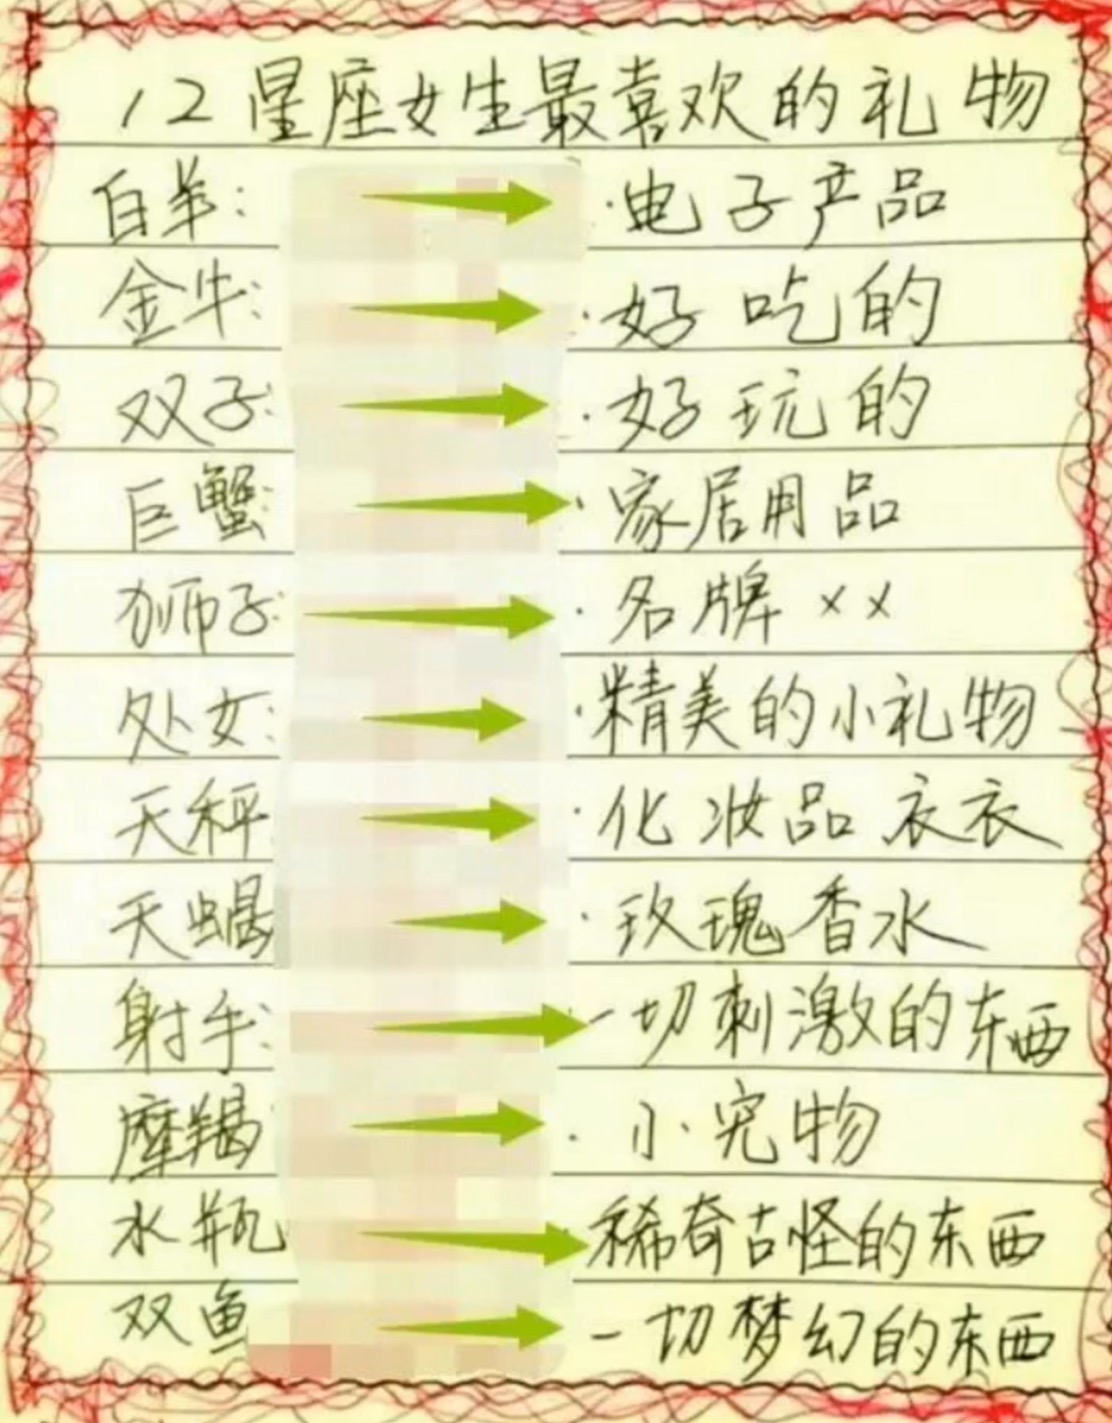 12星座女生最喜欢的礼物
白羊: ·电子产品
金牛: ·好吃的
双子: ·好玩的
巨蟹: ·家居用品
狮子: ·名牌××
处女: ·精美的小礼物
天秤 ·化妆品衣衣
天蝎 ·玫瑰香水
射手: 一切刺激的东西
摩羯 ·小宠物
水瓶 稀奇古怪的东西
双鱼 一切梦幻的东西